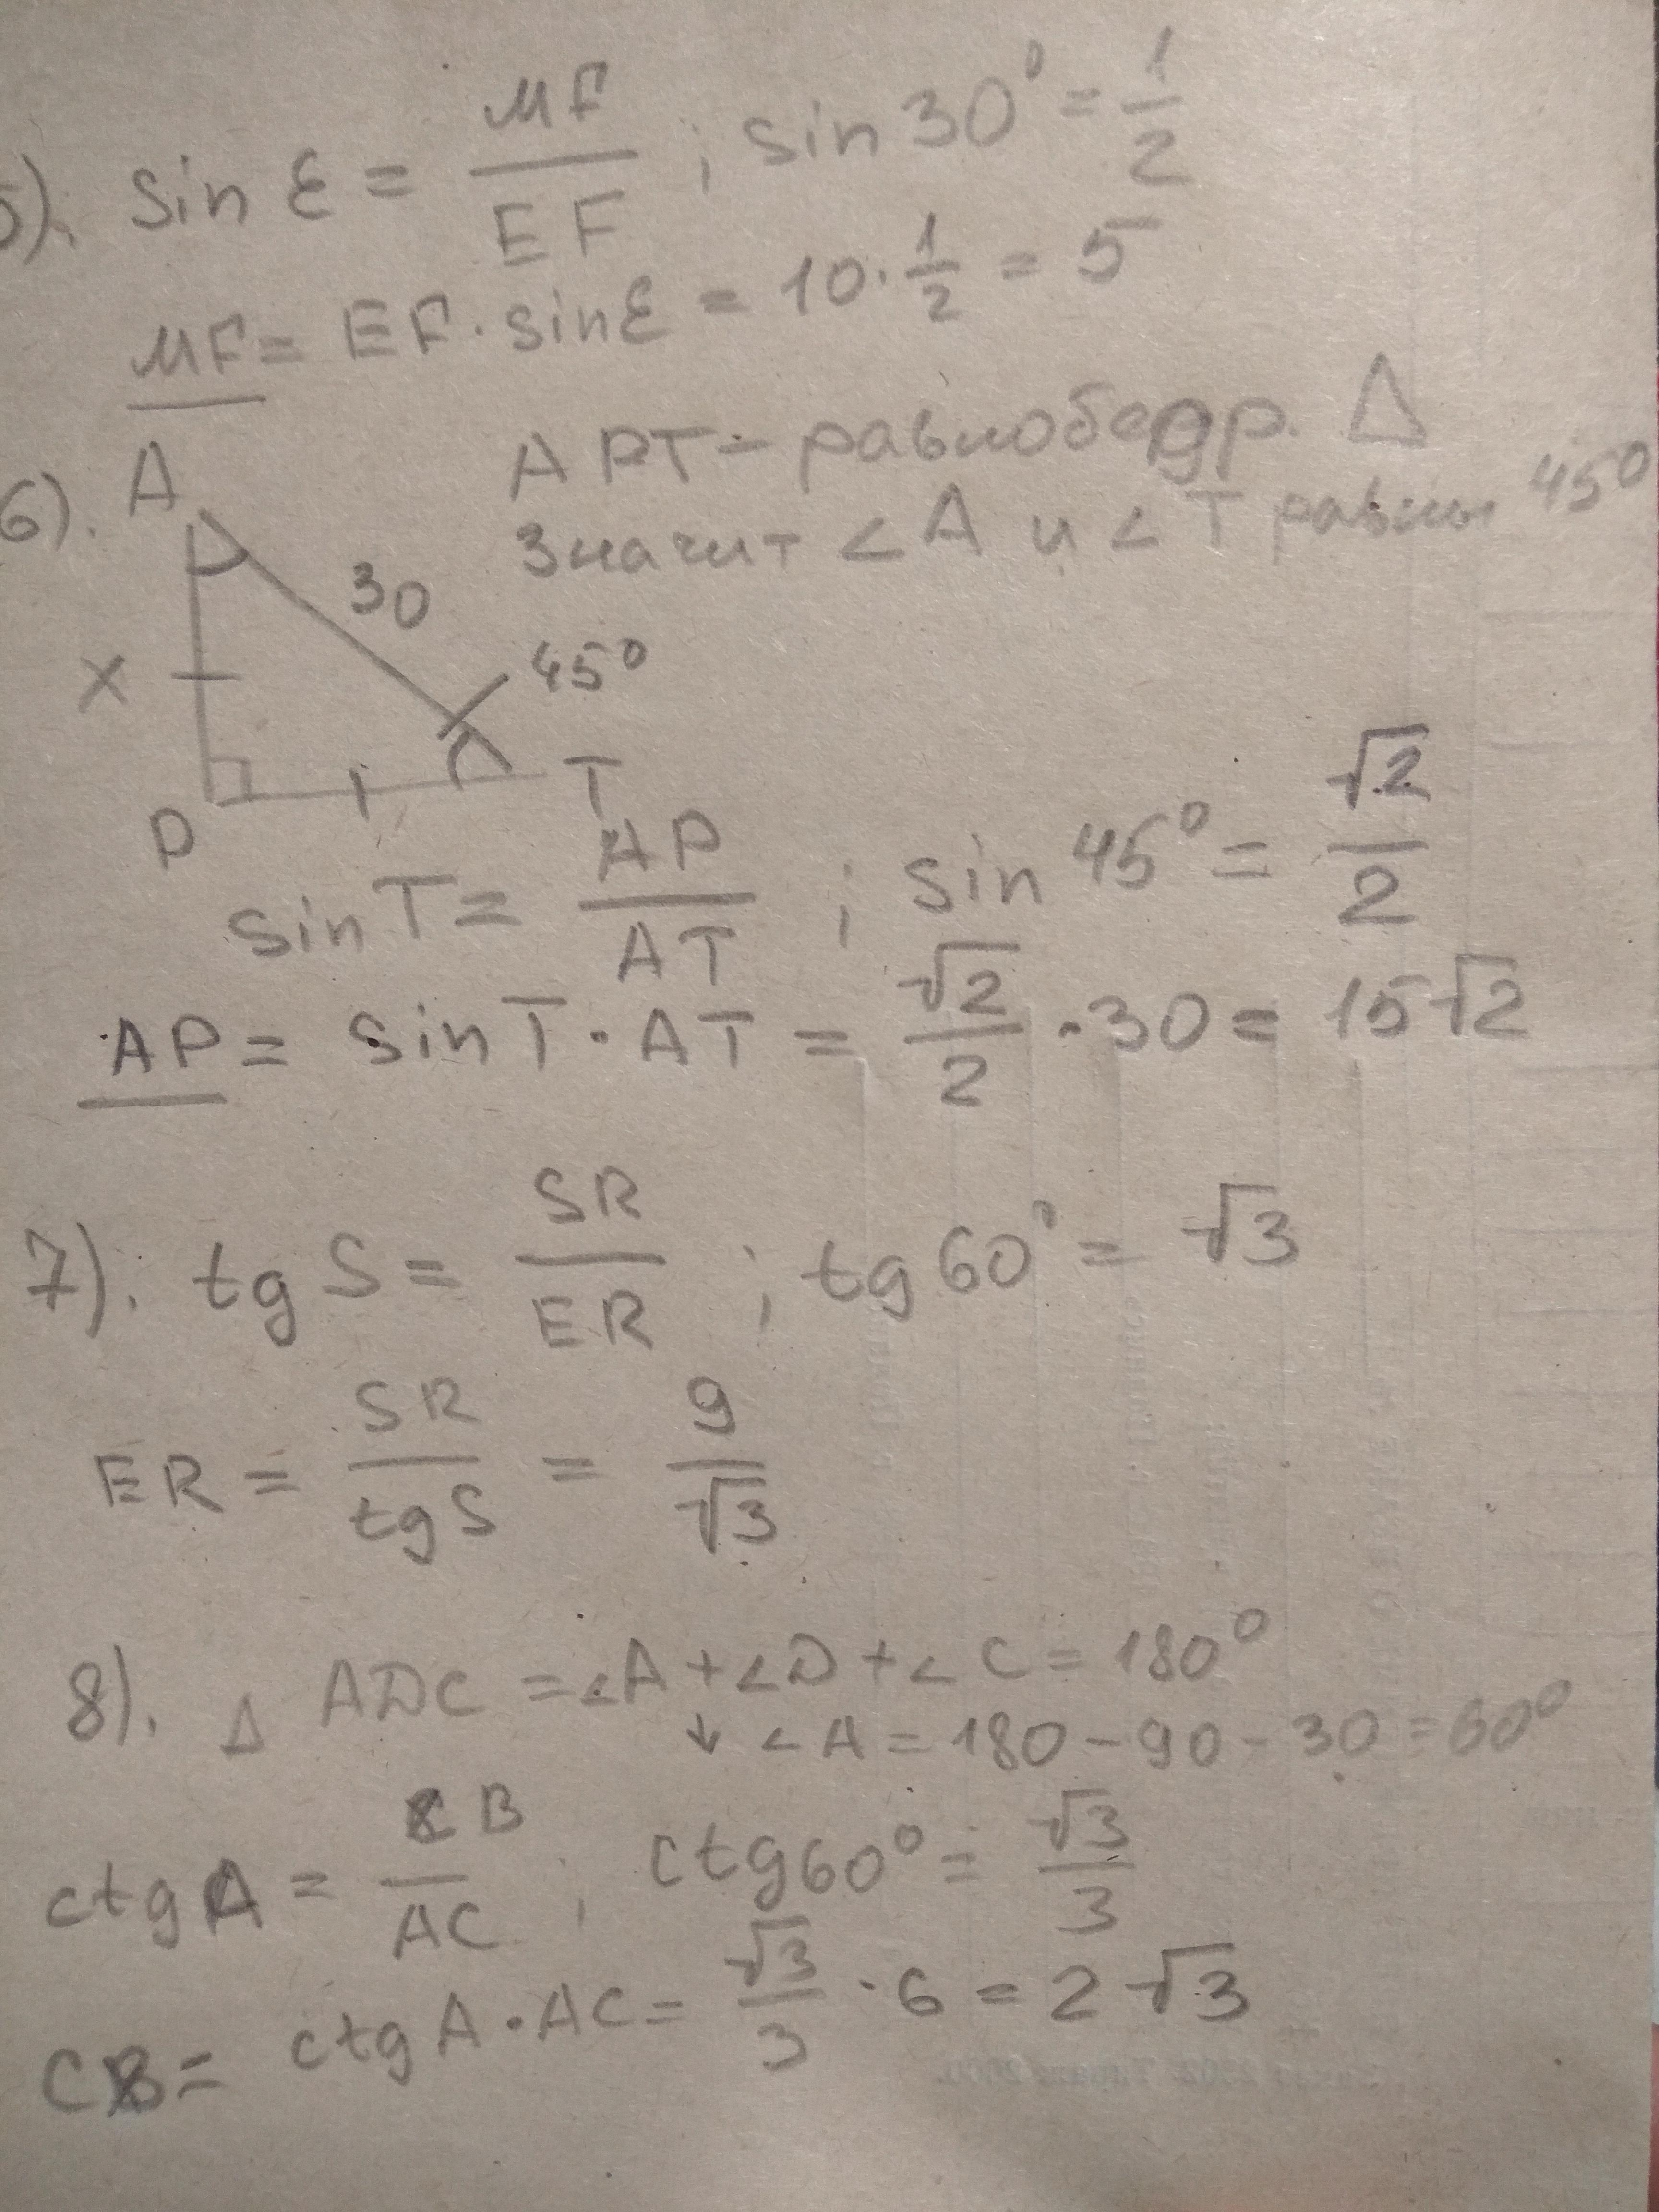 5). sin E = MF/EF ; sin 30° = 1/2
MF = EF · sin E = 10 · 1/2 = 5
6). A
APT - равнобедр. △
Значит ∠A и ∠T равны 45°
30
x
45°
P
T
sin T = AP/AT ; sin 45° = √2/2
AP = sin T · AT = √2/2 · 30 = 15√2
7). tg S = SR/ER ; tg 60° = √3
ER = SR/tg S = 9/√3
8). △ ADC = ∠A + ∠D + ∠C = 180°
↓ ∠A = 180 - 90 - 30 = 60°
ctg A = CB/AC ; ctg 60° = √3/3
CB = ctg A · AC = √3/3 · 6 = 2√3